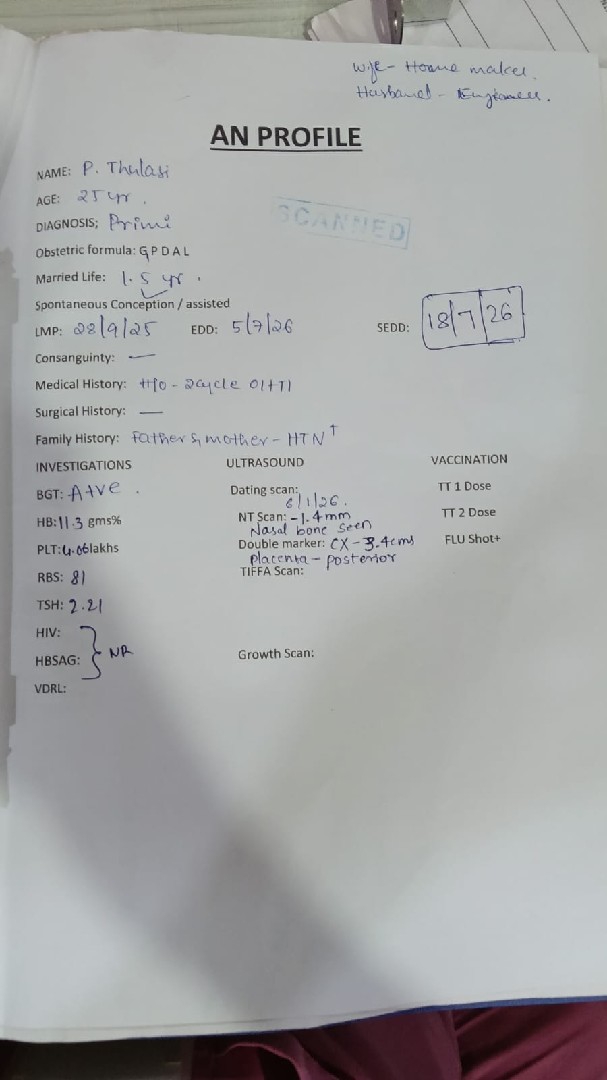 Wife - Home maker.
Husband - Engineer.
AN PROFILE
NAME: P. Thulasi
AGE: 25 yr.
SCANNED
DIAGNOSIS; Primi
Obstetric formula: G P D A L
Married Life: 1.5 yr.
Spontaneous Conception / assisted
LMP: 28/9/25 EDD: 5/7/26 SEDD: 18/7/26
Consanguinty: —
Medical History: H/o - 2cycle OI+TI
Surgical History: —
Family History: Father & mother - HTN↑
INVESTIGATIONS ULTRASOUND VACCINATION
BGT: A+ve. Dating scan: TT 1 Dose
6/1/26.
HB: 11.3 gms% NT Scan: - 1.4mm TT 2 Dose
Nasal bone seen
PLT: 4.06lakhs Double marker: CX - 3.4cms FLU Shot+
Placenta - posterior
RBS: 81 TIFFA Scan:
TSH: 2.21
HIV:
NR
HBSAG: Growth Scan:
VDRL: